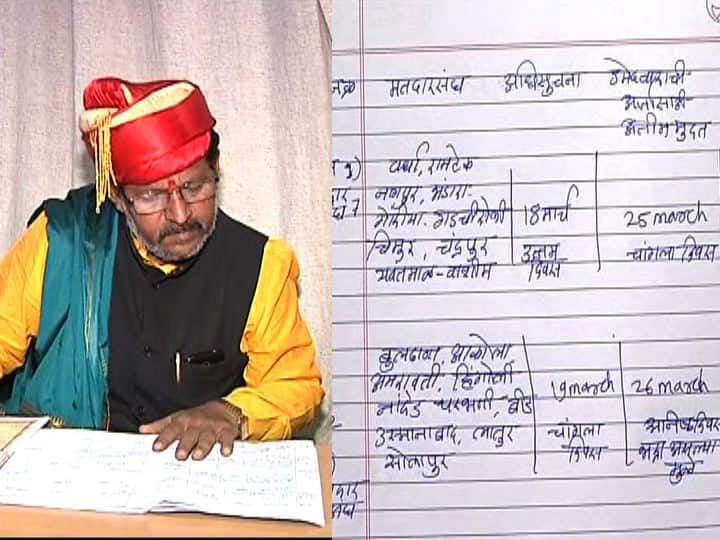 मतदारसंघ अधिसूचना उमेदवाराची
अर्जासाठी
अंतीम मुदत
१)
वर्धा, रामटेक
नागपुर, भंडारा
गोंदीया. गडचीरोली 18 मार्च 25 march
चिमुर, चंद्रपुर उत्तम चांगला दिवस
यवतमाळ-वाशीम दिवस
बुलढाणा, आकोला
अमरावती, हिंगोली 19 march 26 march
नांदेड परभणी, बीड
उस्मानाबाद, लातुर चांगला अनिष्ट दिवस
सोलापुर दिवस भद्रा असल्या
मुळे